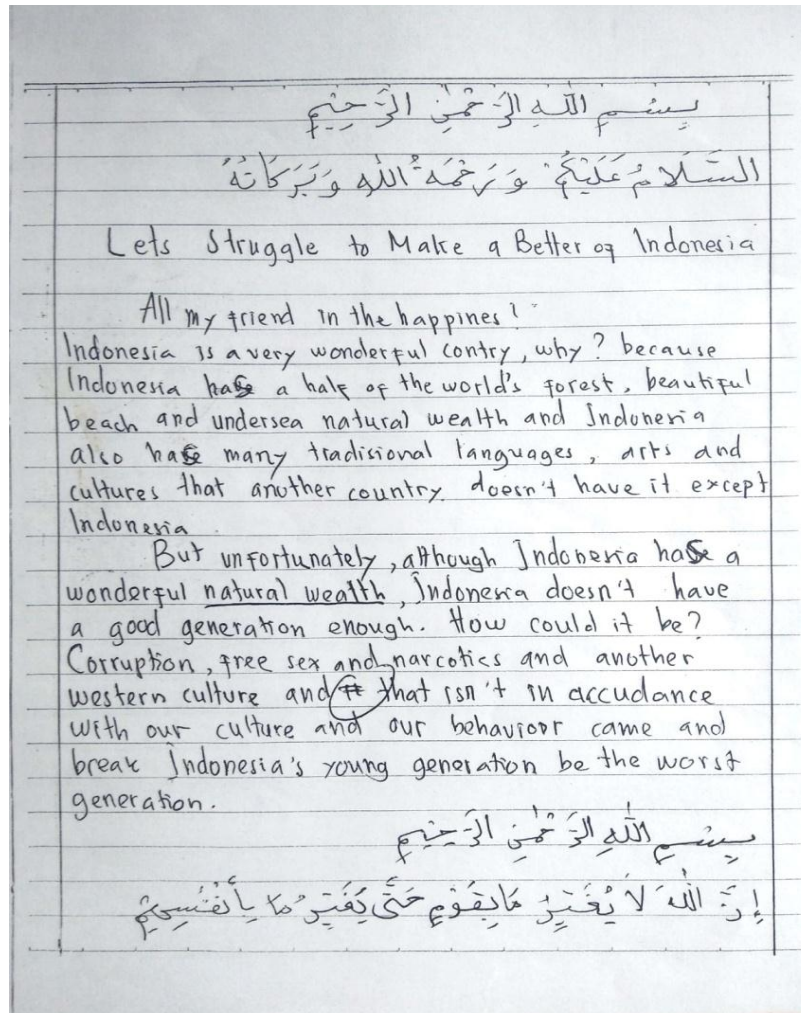 بِسْمِ اللهِ الرَّحْمٰنِ الرَّحِيْمِ
السَّلَامُ عَلَيْكُمْ وَرَحْمَةُ اللهِ وَبَرَكَاتُهُ
Lets Struggle to Make a Better of Indonesia
All my friend in the happines!
Indonesia is a very wonderful contry, why? because
Indonesia has a half of the world's forest, beautiful
beach and undersea natural wealth and Indonesia
also has many tradisional languages, arts and
cultures that another country doesn't have it except
Indonesia
But unfortunately, although Indonesia has a
wonderful natural wealth, Indonesia doesn't have
a good generation enough. How could it be?
Corruption, free sex and narcotics and another
western culture and that isn't in accudance
with our culture and our behavior came and
break Indonesia's young generation be the worst
generation.
بِسْمِ اللهِ الرَّحْمٰنِ الرَّحِيْمِ
إِنَّ اللهَ لَا يُغَيِّرُ مَا بِقَوْمٍ حَتَّى يُغَيِّرُ مَا بِأَنْفُسِهِمْ